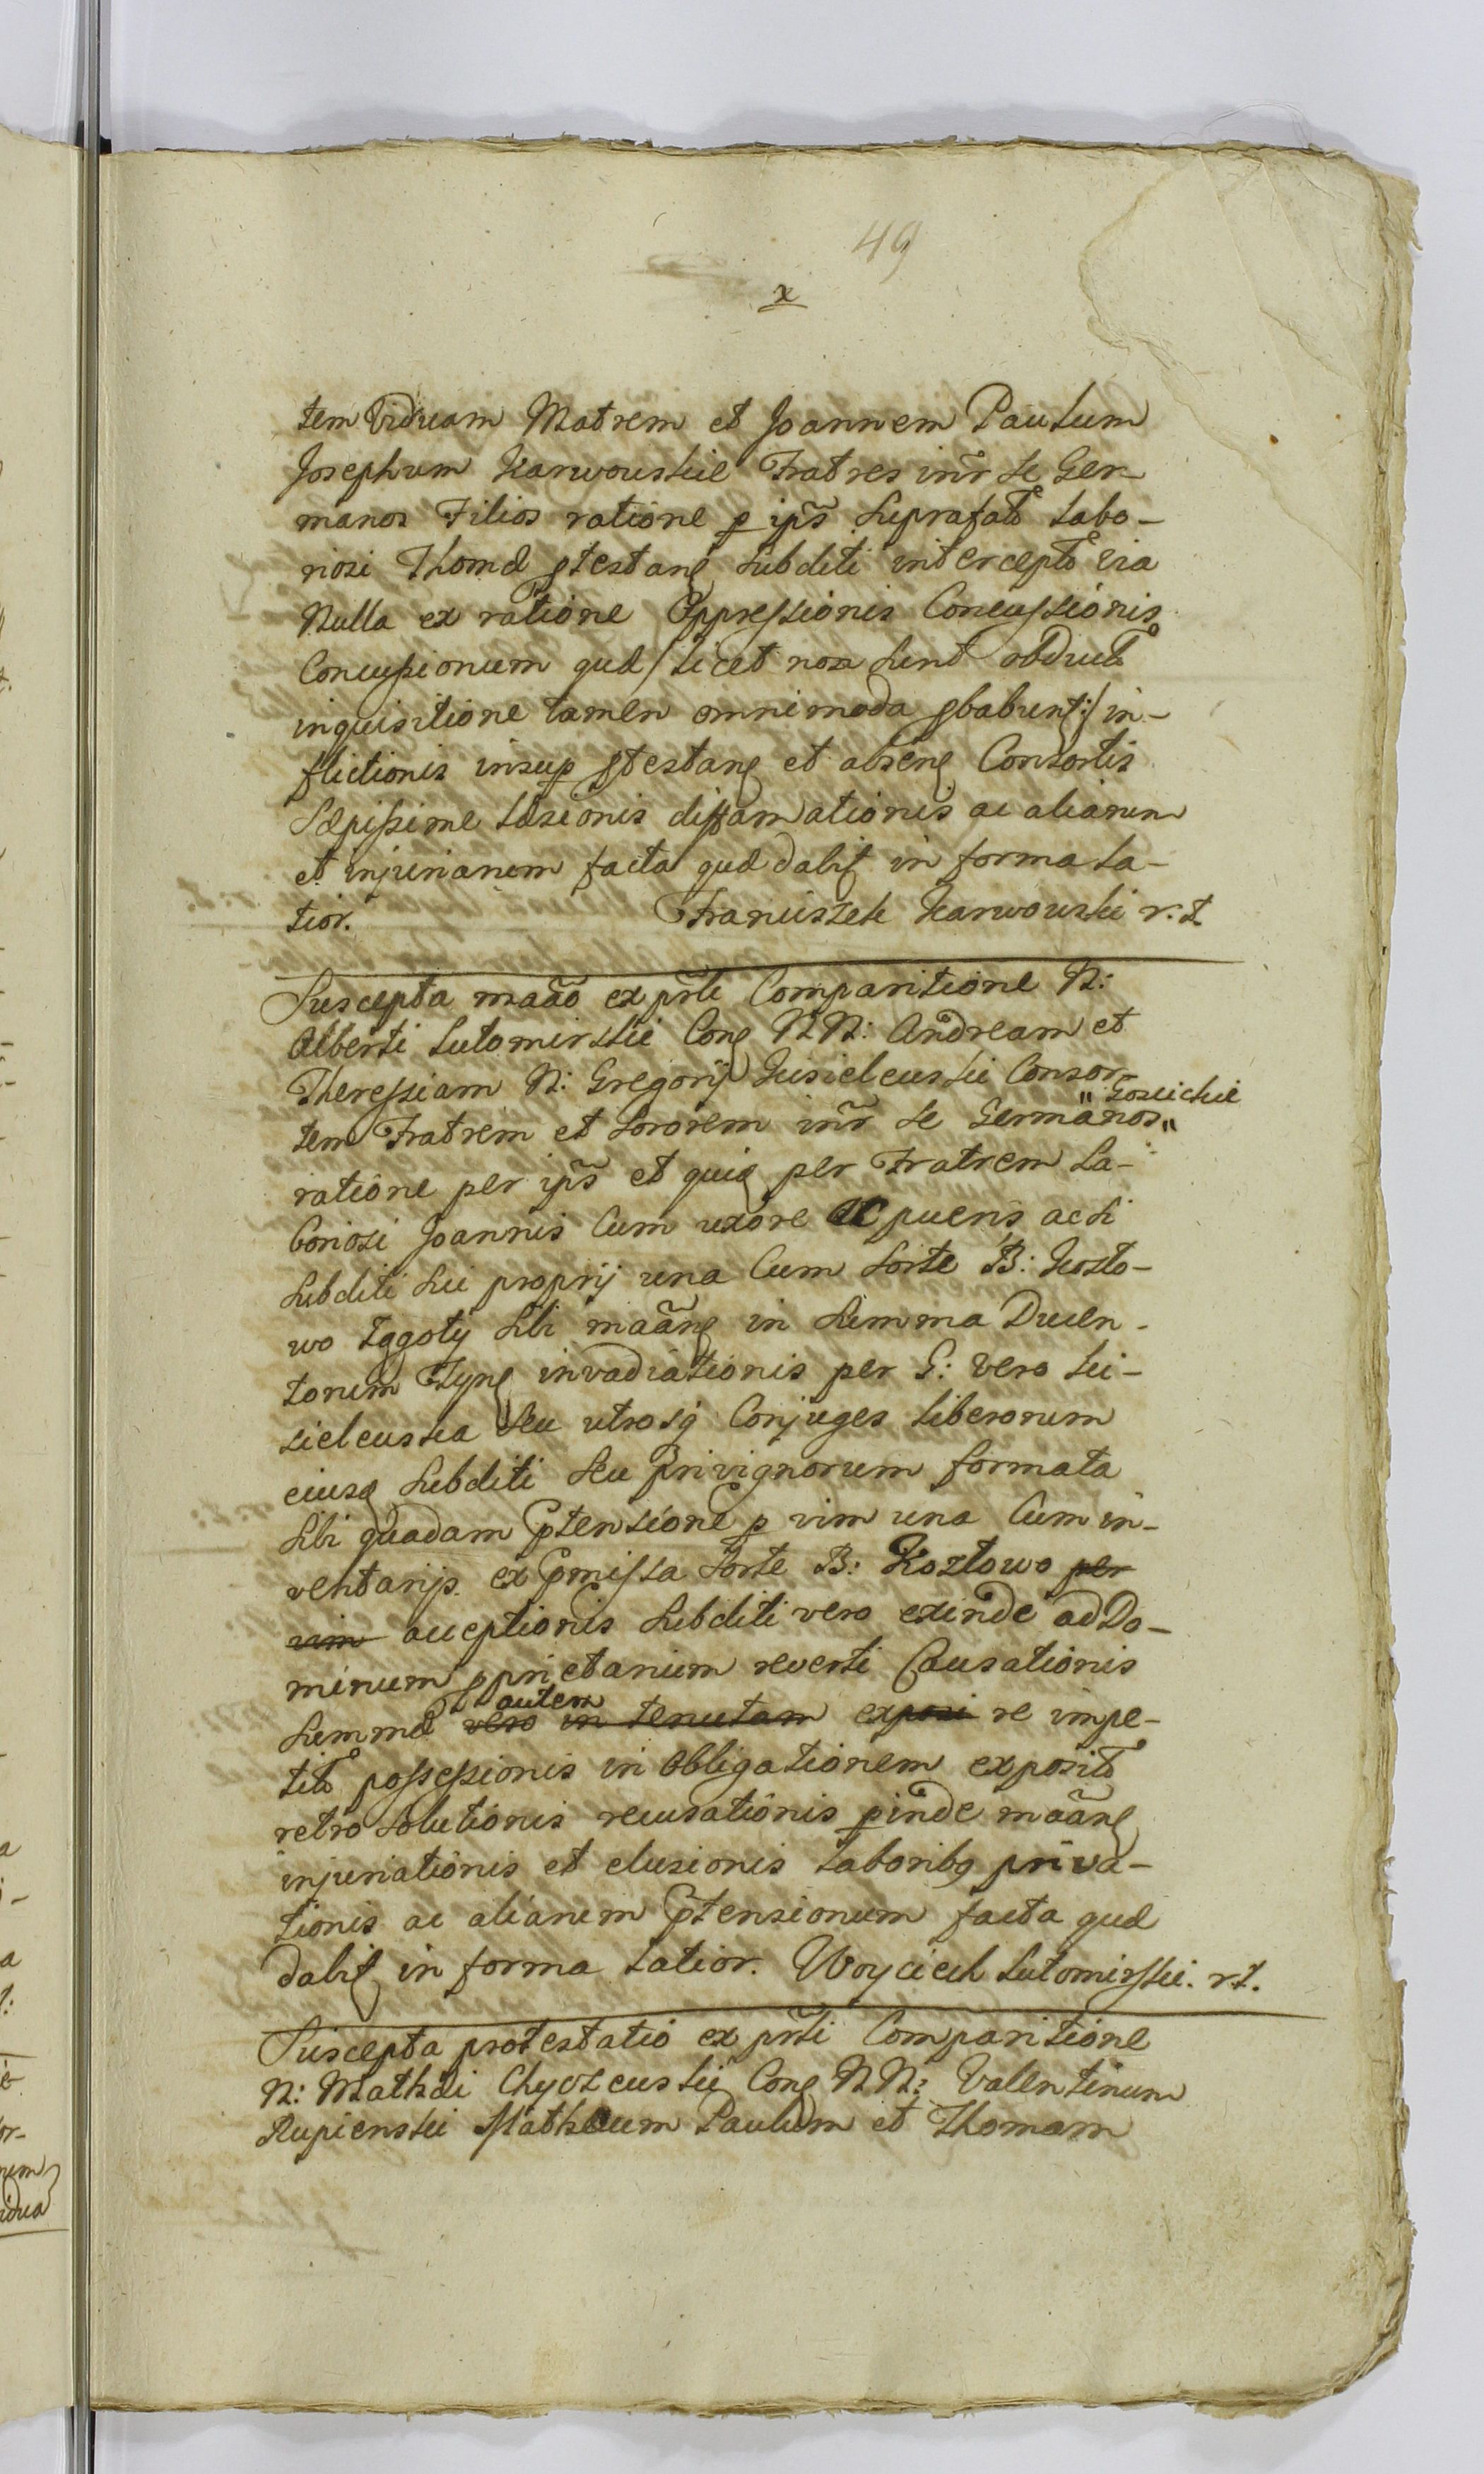 49
x
tem Viduam Matrem et Joannem Paulum
Josephum Karwouskie Fratres inr̃ se Ger-
manos Filios ratione p ip̃s suprafatõ Labo-
riosi Thomæ ptestanꝭ subditi interceptõ via
Nulla ex ratione Oppressionis Concussionis
Concussionum quæ /licet non sint obductõ
inquisitione tamen omnimoda pbabunt:/ in-
flictionis insup ptestanꝭ et absenꝭ Consortis
Sæpissime læsionis diffamationis ac aliarum
et injuriarum facta quæ dabiꝭ in forma la-
tior. Franciszek Karwouski r. s.
Suscepta maão ex pr̃te Comparitione N:
Alberti Lutomirskie Conꝭ NN: Andream et
Theressiam N: Gregorij Kisieleuskie Consor-
tem Fratrem et Sororem inr̃ se Germanos "Goskickie"
ratione per ip̃s et quiꝭ per Fratrem La-
boriosi Joannis Cum uxore ac pueris acsi
subditi sui proprij una Cum Sorte B: Kozło-
wo Zggoty sibi maãnꝭ in summa Ducen-
torum Flynꝭ invadiationis per G: vero Ki-
sieleuska seu utrosꝗ Conjuges liberorum
eiusꝗ subditi seu Privignorum formata
sibi quadam Ptensione p vim una Cum in-
ventarijs ex Pmissa Sorte B: Kozłowo per
vim acceptionis subditi vero exinde ad Do-
minum pprietarium reverti Causationis
Summæ vero autem in tenutam exposi re impe-
titõ possessionis in Obligationem expositõ
retro solutionis recusationis pinde maãnꝭ
injuriationis et elusionis laboribꝗ priva-
tionis ac aliarum Ptensionum facta quæ
dabiꝭ in forma latior. Woyciech Lutomirski. r. s.
Suscepta protestatio ex pr̃ti Comparitione
N: Mathæi Chyczeuskie Conꝭ NN: Valentinum
Rupienskie Mathæum Paulum et Thomam